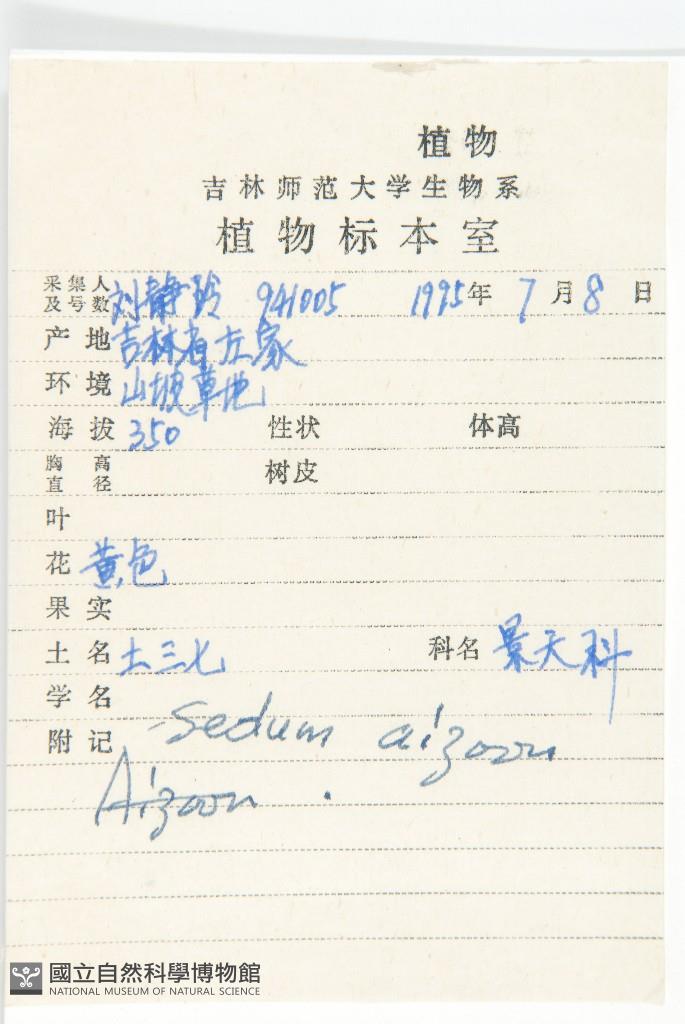 植物
吉林师范大学生物系
植物标本室
采集人及号数 刘静玲 941005 1995年7月8日
产地 吉林省左家
环境 山坡草地
海拔 350 性状 体高
胸高直径 树皮
叶
花 黄色
果实
土名 土三七 科名 景天科
学名
附记 Sedum aizoon
Aizoon.
國立自然科學博物館
NATIONAL MUSEUM OF NATURAL SCIENCE